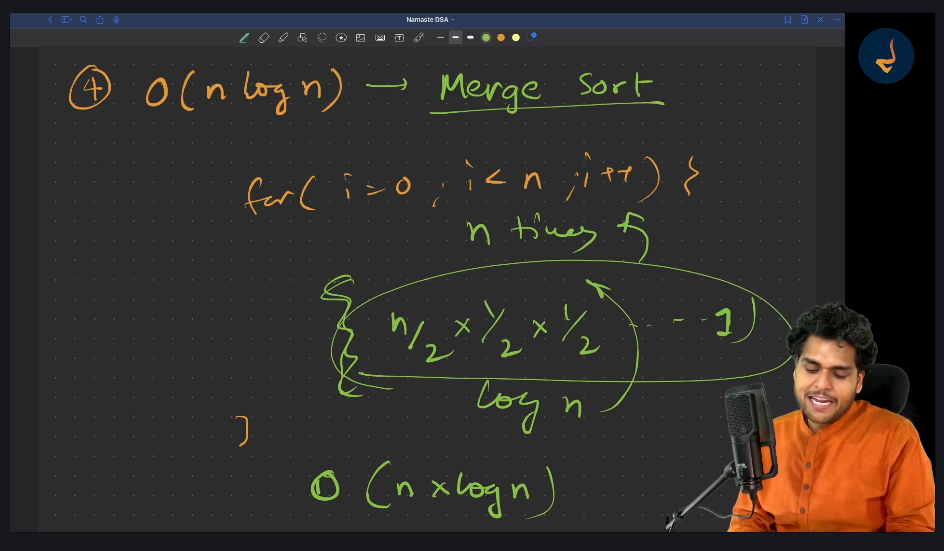 Namaste DSA
④ O(n log n) → Merge Sort
for( i=0 ; i< n ; i++) {
n times
{ n/2 × 1/2 × 1/2 - - - - 1)
log n
}
O (n × log n)